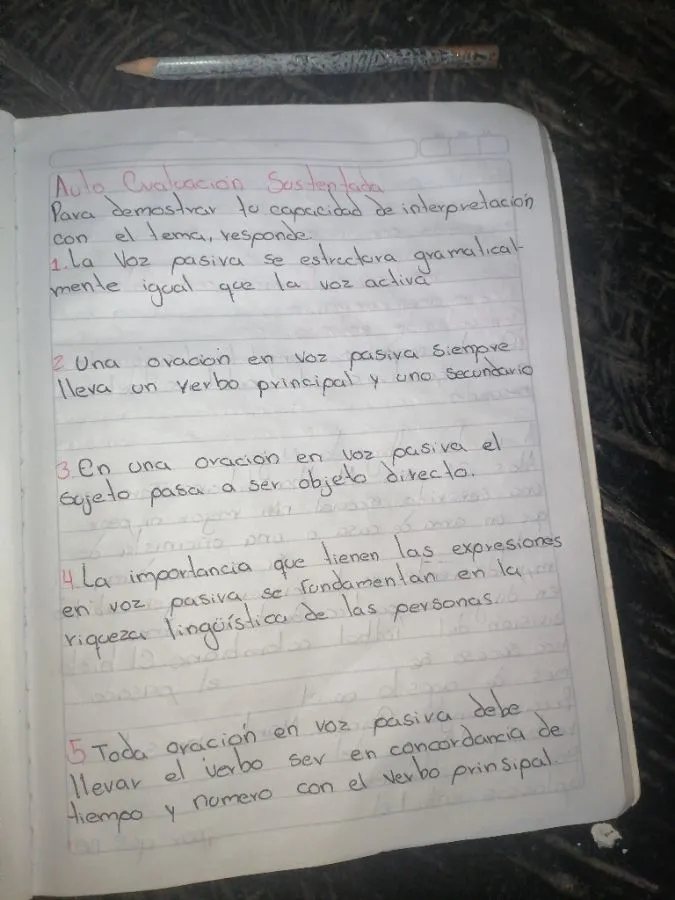 Auto Evaluación Sustentada
Para demostrar tu capacidad de interpretación
con el tema, responde.
1. La Voz pasiva se estructura gramatical-
mente igual que la voz activa
2 Una oración en voz pasiva siempre
lleva un verbo principal y uno secundario
3. En una oración en voz pasiva el
sujeto pasa a ser objeto directo.
4 La importancia que tienen las expresiones
en voz pasiva se fundamentan en la
riqueza lingüística de las personas.
5 Toda oración en voz pasiva debe
llevar el verbo ser en concordancia de
tiempo y numero con el verbo prinsipal.